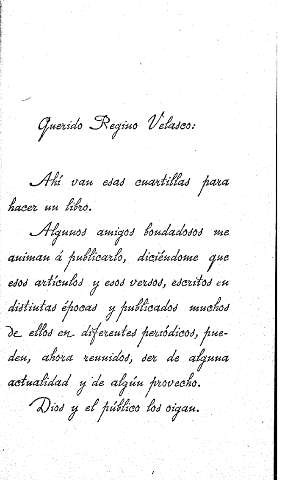 Querido Regino Velasco:
Ahí van esas cuartillas para
hacer un libro.
Algunos amigos bondadosos me
animan á publicarlo, diciéndome que
esos artículos y esos versos, escritos en
distintas épocas y publicados muchos
de ellos en diferentes periódicos, pue-
den, ahora reunidos, ser de alguna
actualidad y de algún provecho.
Dios y el público los oigan.